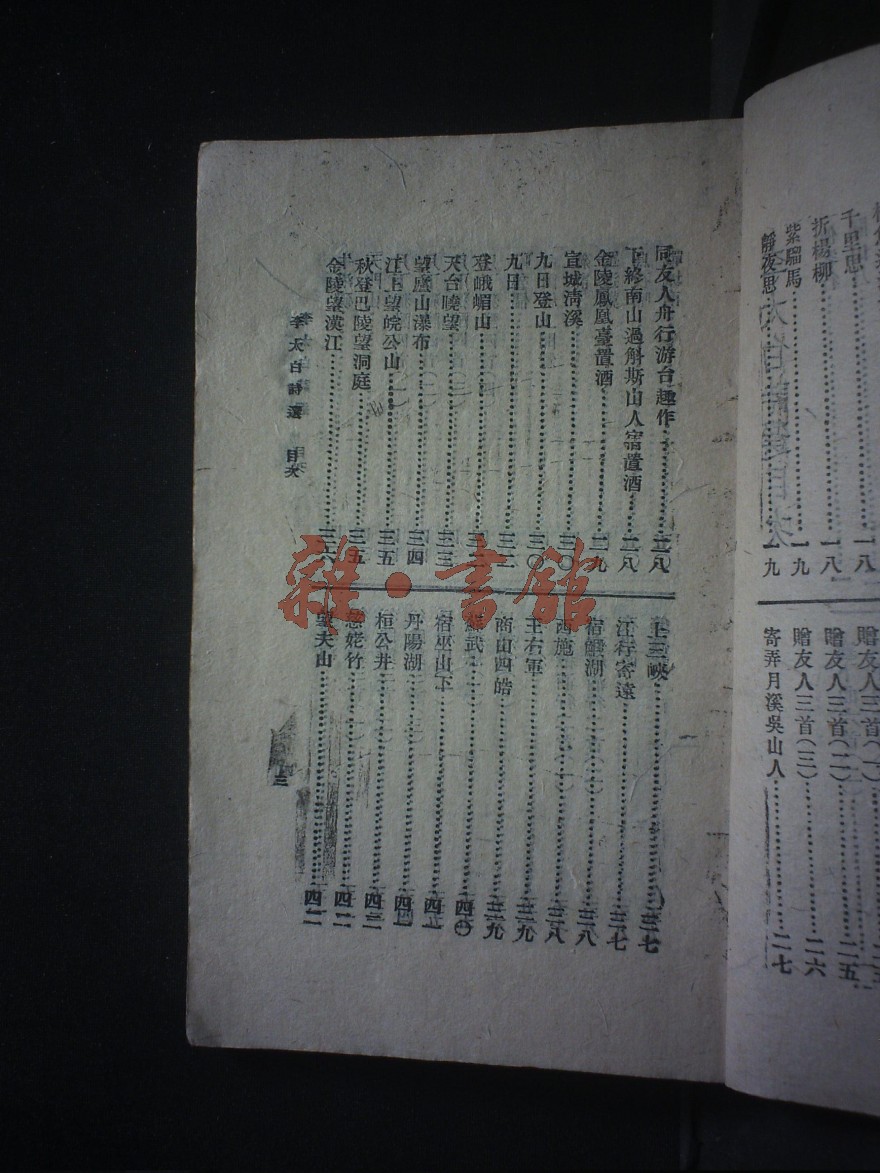 千里思……一八
折楊柳……一八
紫騮馬……一九
靜夜思……一九
贈友人三首(一)
贈友人三首(二)……二五
贈友人三首(三)……二六
寄弄月溪吳山人……二七
同友人舟行游台越作……二八
下終南山過斛斯山人宿置酒……二八
金陵鳳凰臺置酒……二九
宣城淸溪……三〇
九日登山……三〇
九日
登峨嵋山
天台曉望……三三
望廬山瀑布……三四
江上望皖公山……三五
秋登巴陵望洞庭……三五
金陵望漢江……三六
上三峽……三七
江行寄遠……三七
宿鰕湖……三八
西施……三八
王右軍……三九
商山四皓……三九
蘇武……四〇
宿巫山下
丹陽湖
桓公井
慈姥竹
望夫山……四二
李太白詩選 目次
三
雜·書館